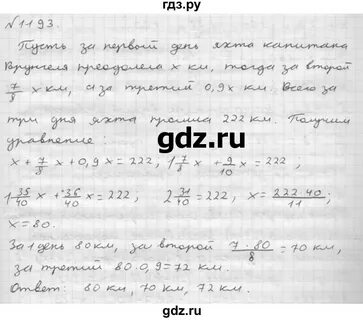 гдз.ру
№1193.
Пусть за первый день яхта капитана
Врунгеля преодолела x км, тогда за второй
7/8 x км, а за третий 0,9x км. Всего за
три дня яхта прошла 222 км. Получим
уравнение:
x + 7/8 x + 0,9x = 222, 1 7/8 x + 9/10 x = 222,
1 35/40 x + 36/40 x = 222, 2 31/40 x = 222, x = 222·40/11;
x = 80.
За 1 день 80 км, за второй 7·80/8 = 70 км,
за третий 80·0,9 = 72 км.
Ответ: 80 км, 70 км, 72 км.
gdz.ru
gdz.ru
gdz.ru